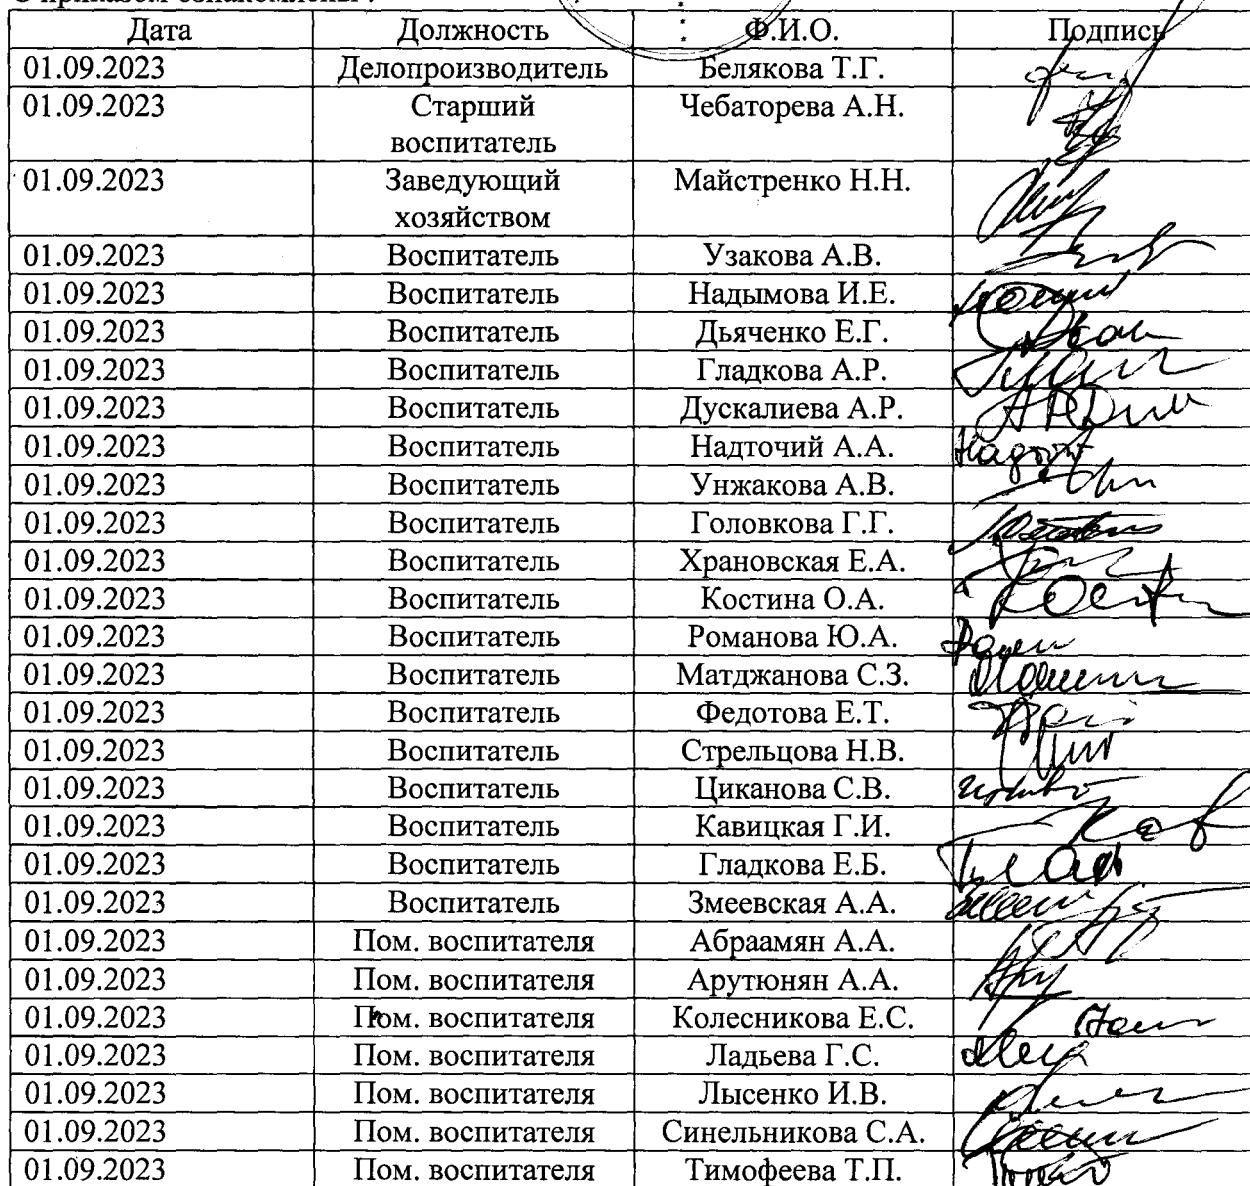 С приказом ознакомлены :
Дата Должность Ф.И.О. Подпись
01.09.2023 Делопроизводитель Белякова Т.Г.
01.09.2023 Старший воспитатель Чебаторева А.Н.
01.09.2023 Заведующий хозяйством Майстренко Н.Н.
01.09.2023 Воспитатель Узакова А.В.
01.09.2023 Воспитатель Надымова И.Е.
01.09.2023 Воспитатель Дьяченко Е.Г.
01.09.2023 Воспитатель Гладкова А.Р.
01.09.2023 Воспитатель Дускалиева А.Р.
01.09.2023 Воспитатель Надточий А.А.
01.09.2023 Воспитатель Унжакова А.В.
01.09.2023 Воспитатель Головкова Г.Г.
01.09.2023 Воспитатель Храновская Е.А.
01.09.2023 Воспитатель Костина О.А.
01.09.2023 Воспитатель Романова Ю.А.
01.09.2023 Воспитатель Матджанова С.З.
01.09.2023 Воспитатель Федотова Е.Т.
01.09.2023 Воспитатель Стрельцова Н.В.
01.09.2023 Воспитатель Циканова С.В.
01.09.2023 Воспитатель Кавицкая Г.И.
01.09.2023 Воспитатель Гладкова Е.Б.
01.09.2023 Воспитатель Змеевская А.А.
01.09.2023 Пом. воспитателя Абраамян А.А.
01.09.2023 Пом. воспитателя Арутюнян А.А.
01.09.2023 Пом. воспитателя Колесникова Е.С.
01.09.2023 Пом. воспитателя Ладьева Г.С.
01.09.2023 Пом. воспитателя Лысенко И.В.
01.09.2023 Пом. воспитателя Синельникова С.А.
01.09.2023 Пом. воспитателя Тимофеева Т.П.